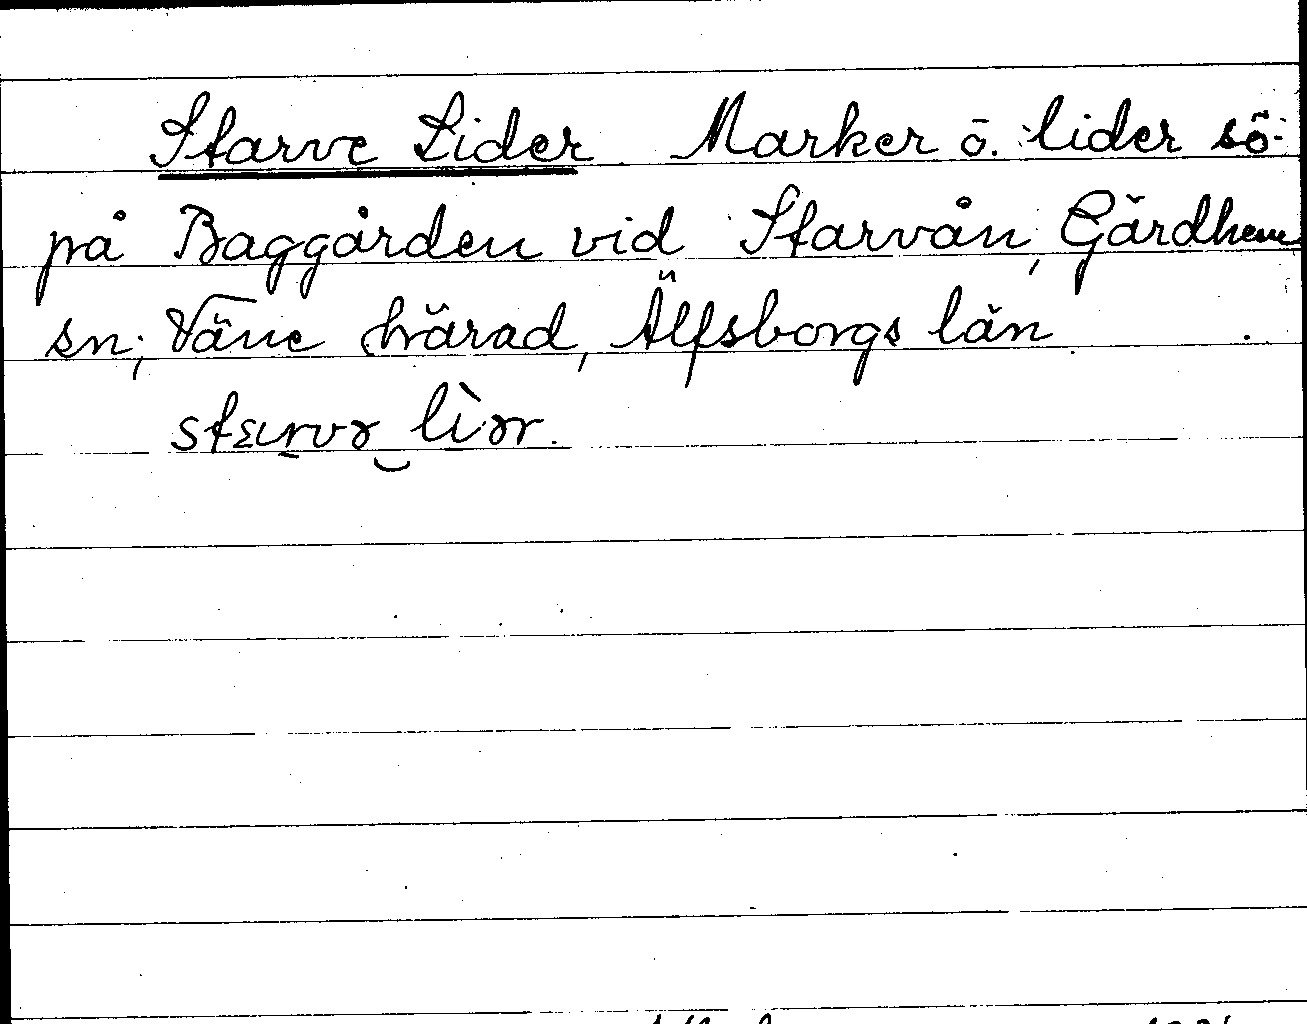 Starve Lider Marker o. lider sö-
på Baggården vid Starvån, Gärdhem
sn; Väne härad, Älfsborgs län.